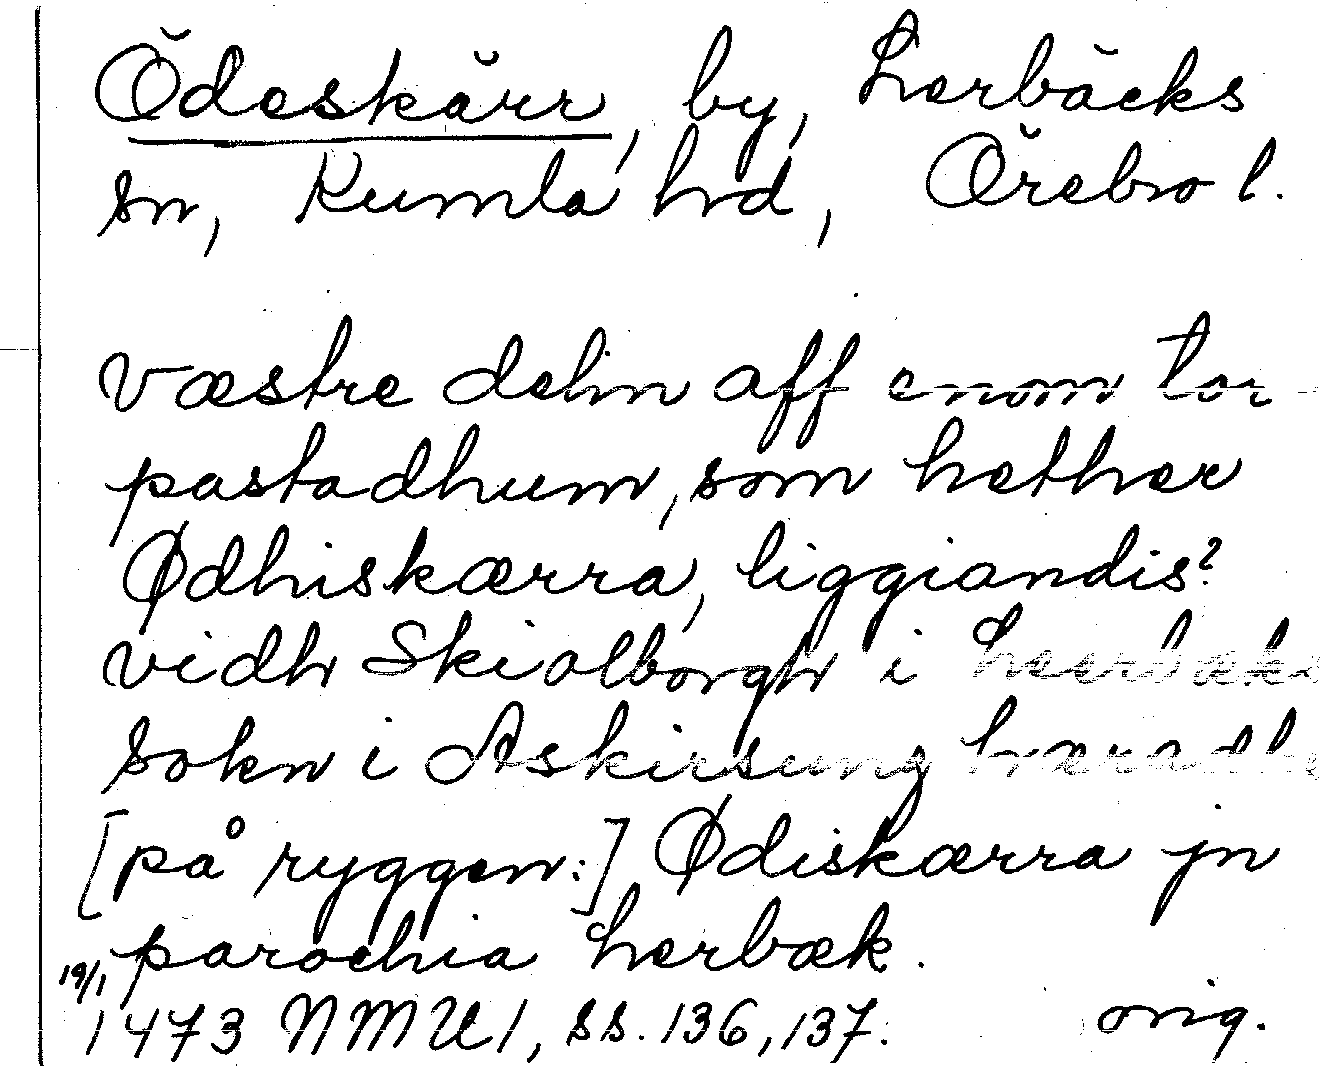 Ödeskärr, by, Lerbäcks
sn, Kumla hrd, Örebro l.
Væstre delin aff enom tor-
pastadhum, som hether
Ødhiskærra, liggiandis?
vidh Skialborgh i Leerbæks
sokn i Askirsung hæradhe
[på ryggen:] Ødiskærra jn
parochia Lerbæk.
19/1
1473 NMU 1, ss. 136, 137. orig.